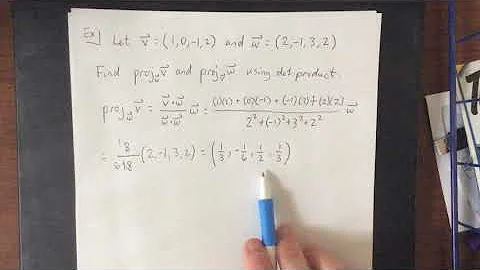 Ex) Let v⃗ = (1, 0, -1, 2) and w⃗ = (2, -1, 3, 2)
Find proj_w⃗ v⃗ and proj_v⃗ w⃗ using dot product.
proj_w⃗ v⃗ = (v⃗ · w⃗)/(w⃗ · w⃗) w⃗ = ((1)(2) + (0)(-1) + (-1)(3) + (2)(2))/(2² + (-1)² + 3² + 2²) w⃗
= (2, -1, 3, 2) = (1/3, -1/6, 1/2, 1/3)